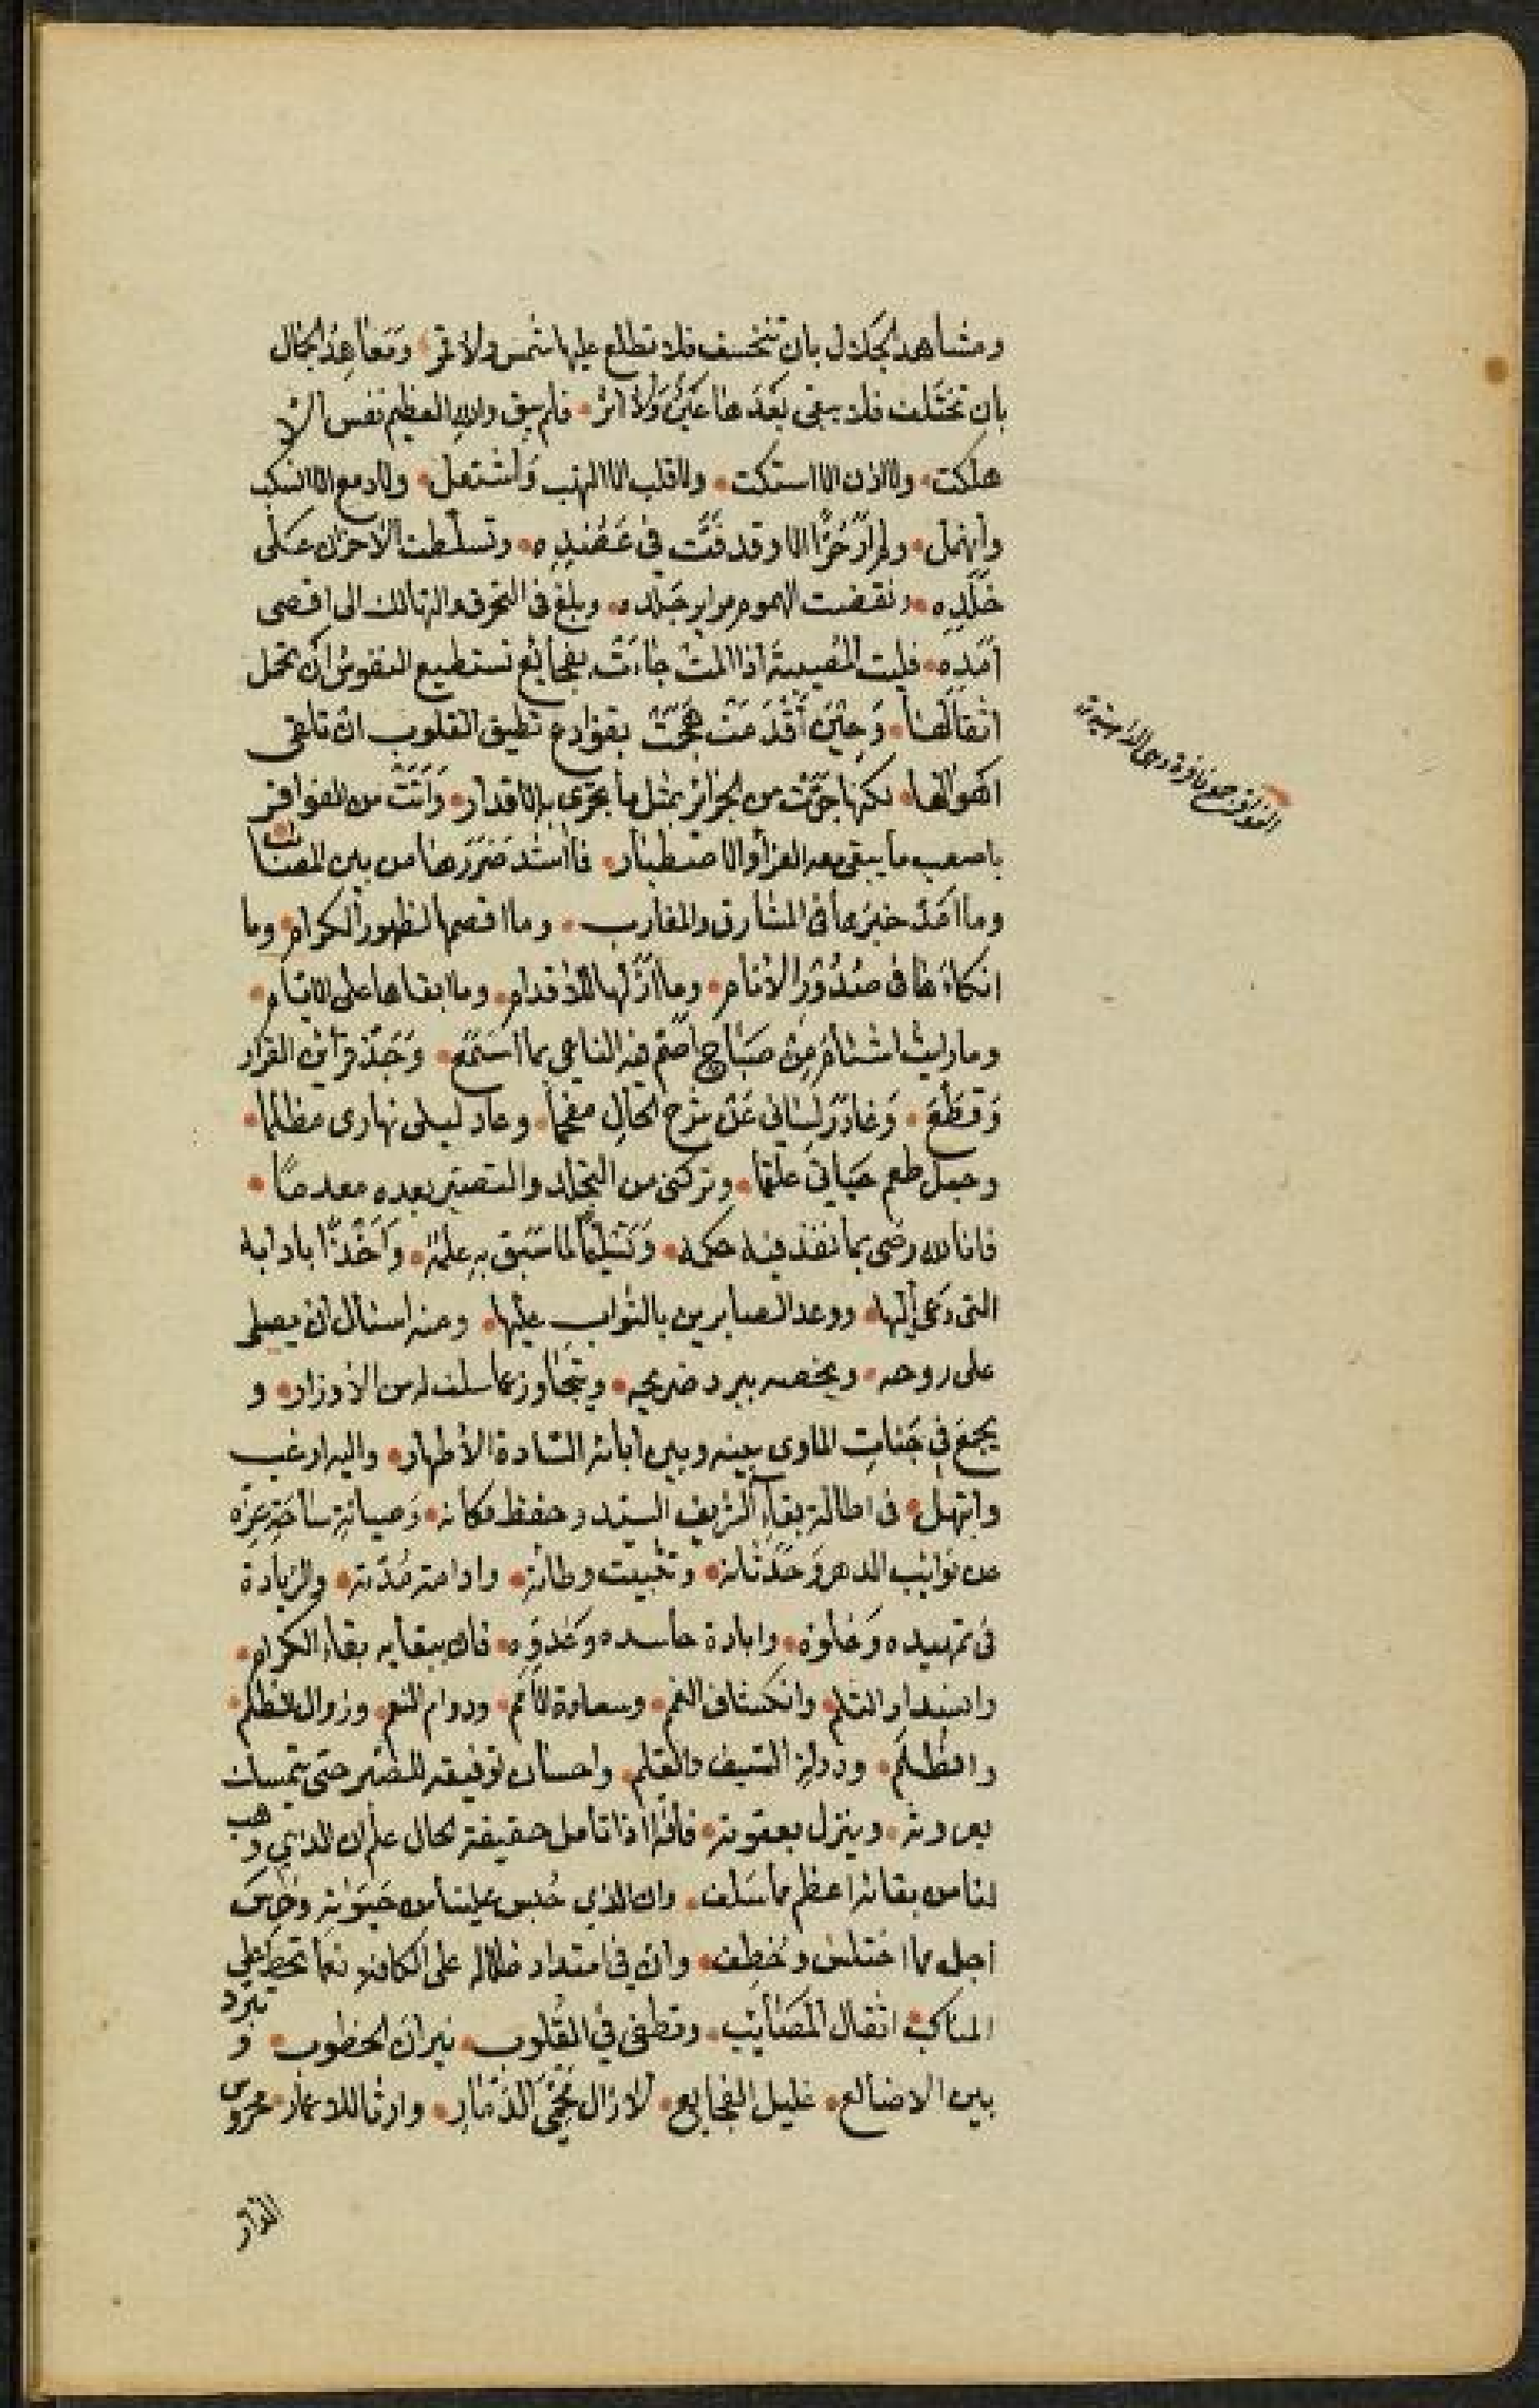 ومشاهد الجلال بان تنخسف فلا تطلع عليها شمس ولا قمر ومعاهد الجمال
بان تختلف فلا يبقى بعدها عين ولا اثر فلم يبق والله العظيم نفس الا
هلكت ولا اذن الا استكت ولا قلب الا التهب واشتعل ولا دمع الا انسكب
وانهمل ولم ار حرّا الا وقد فتّ في عضده وتسلّطت الاحزان على
خلده ونقضت الهموم مراير جلده وبلغ في التحرق والتهالك الى اقصى
امده فليت المصيبة اذا المت جاءت بفجايع تستطيع النفوس ان تحمل
اثقالها وحين أقدمت هجمت بقوارع تطيق القلوب ان تلاقي
اهوالها لكنها جرّت من الجرائر بمثل ما تجري به الاقدار واتت من الفواقر
باصعب ما يبقى معه العزاء والاصطبار فما اشد ضررها من بين المصائب
وما امدّ خبرها في المشارق والمغارب وما اقصمها لظهور الكرام وما
انكاءها في صدور الانام وما ازلّها للاقدام وما ابقاها على الايام
وما رايت اشأم من صباح اصمّ فيه الناعي بما اسمع وجذّ قرائن القرار
وقطع وغادر لساني عن شرح الحال مفحما وعاد ليلى نهارى مظلما
وجعل طعم حياتي علقما وتركني من التجلد والتصبر بعده معدما
فانا لله رضى بما نفذ فيه حكمه وتسليما لما سبق به علمه واخذا بادابه
التي دعى إليها ووعد الصابرين بالثواب عليها ومنه اسئال ان يصلى
على روحه ويخصه ببرد ضريحه ويتجاوز عما سلف له من الاوزار و
يجمع في جنات الماوى بينه وبين آبائه السّادة الأطهار واليه ارغب
وابتهل في اطالة بقاء الشريف السيد وحفظ مكانه وصيانة ساحة عزه
من نوائب الدهر وحدثانه وتثبيت وطائه وادامة مدّته والزيادة
في تمهيده وعلوه وابادة حاسده وعدوه فان ببقائه بقاء الكرام
وانسداد الثلم وانكشاف الغم وسعادة الأمم ودوام النعم وزوال الظلم
والظُلَم ودولة السيف والقلم واحسان توفيقه للصبر حتى يتمسك
بعروته وينزل بعقوته فأنّه اذا تأمل حقيقة الحال علم ان الذي وهب
لنا من بقائه اعظم مما سلف وان الذي حُبس علينا من حيوته وحرس
أجل مما اختلس وخطف وان في امتداد ظلاله على الكافة نعما تحط على
المناكب اثقال المصائب وتطفي في القلوب نيران الخطوب و تبرد
بين الاضالع غليل الفجايع لا زال محميّ الذمار وارثا للاعمار محروس
الدار